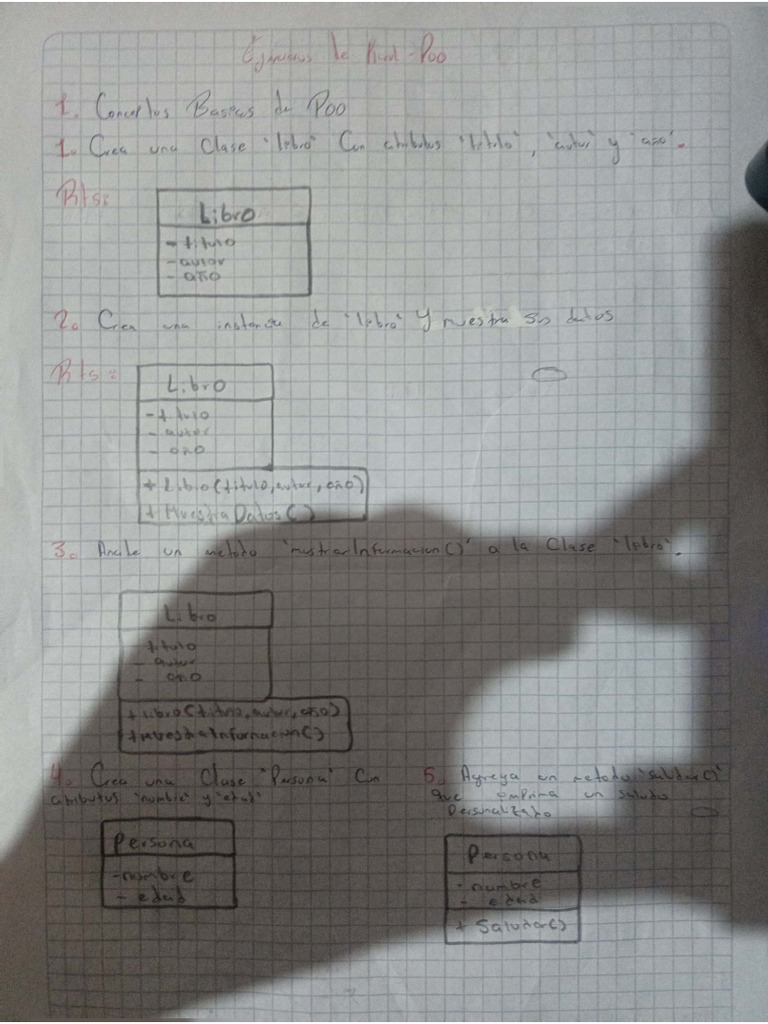 Ejercicios de Kind - Poo
1. Conceptos Basicos de Poo
1. Crea una Clase "libro" Con atributos "titulo", "autor" y "año".
Rts:
Libro
- titulo
- autor
- año
2. Crea una instancia de "libro" y muestra sus datos
Rts:
Libro
- titulo
- autor
- año
+ Libro(titulo, autor, año)
+ MuestraDatos()
3. Añade un metodo "mostrarInformacion()" a la Clase "libro".
Libro
titulo
- autor
- año
+ Libro(titulo, autor, año)
+ MuestraInformacion()
4. Crea una Clase "Persona" Con
atributos "nombre" y "edad"
Persona
- nombre
- edad
5. Agrega un metodo "saludar()"
que imprima un saludo
Personalizado
Persona
- nombre
- edad
+ Saludar()